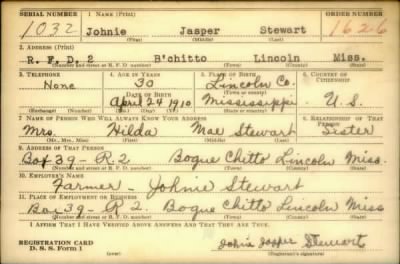 SERIAL NUMBER 1. NAME (Print) ORDER NUMBER
1032 Johnie Jasper Stewart 1626
(First) (Middle) (Last)
2. ADDRESS (Print)
R. F. D. 2 B'chitto Lincoln Miss.
(Number and street or R. F. D. number) (Town) (County) (State)
3. TELEPHONE 4. AGE IN YEARS 5. PLACE OF BIRTH 6. COUNTRY OF CITIZENSHIP
None 30 Lincoln Co.
DATE OF BIRTH (Town or county)
April 24 1910 Mississippi U. S.
(Exchange) (Number) (Mo.) (Day) (Yr.) (State or country)
7. NAME OF PERSON WHO WILL ALWAYS KNOW YOUR ADDRESS 8. RELATIONSHIP OF THAT PERSON
Mrs. Hilda Mae Stewart Sister
(Mr., Mrs., Miss) (First) (Middle) (Last)
9. ADDRESS OF THAT PERSON
Box 39 - R 2 Bogue Chitto Lincoln Miss.
(Number and street or R. F. D. number) (Town) (County) (State)
10. EMPLOYER'S NAME
Farmer - Johnie Stewart
11. PLACE OF EMPLOYMENT OR BUSINESS
Box 39 - R 2. Bogue Chitto Lincoln Miss
(Number and street or R. F. D. number) (Town) (County) (State)
I AFFIRM THAT I HAVE VERIFIED ABOVE ANSWERS AND THAT THEY ARE TRUE.
REGISTRATION CARD
D. S. S. Form 1 (over) Johnie Jasper Stewart
(Registrant's signature)